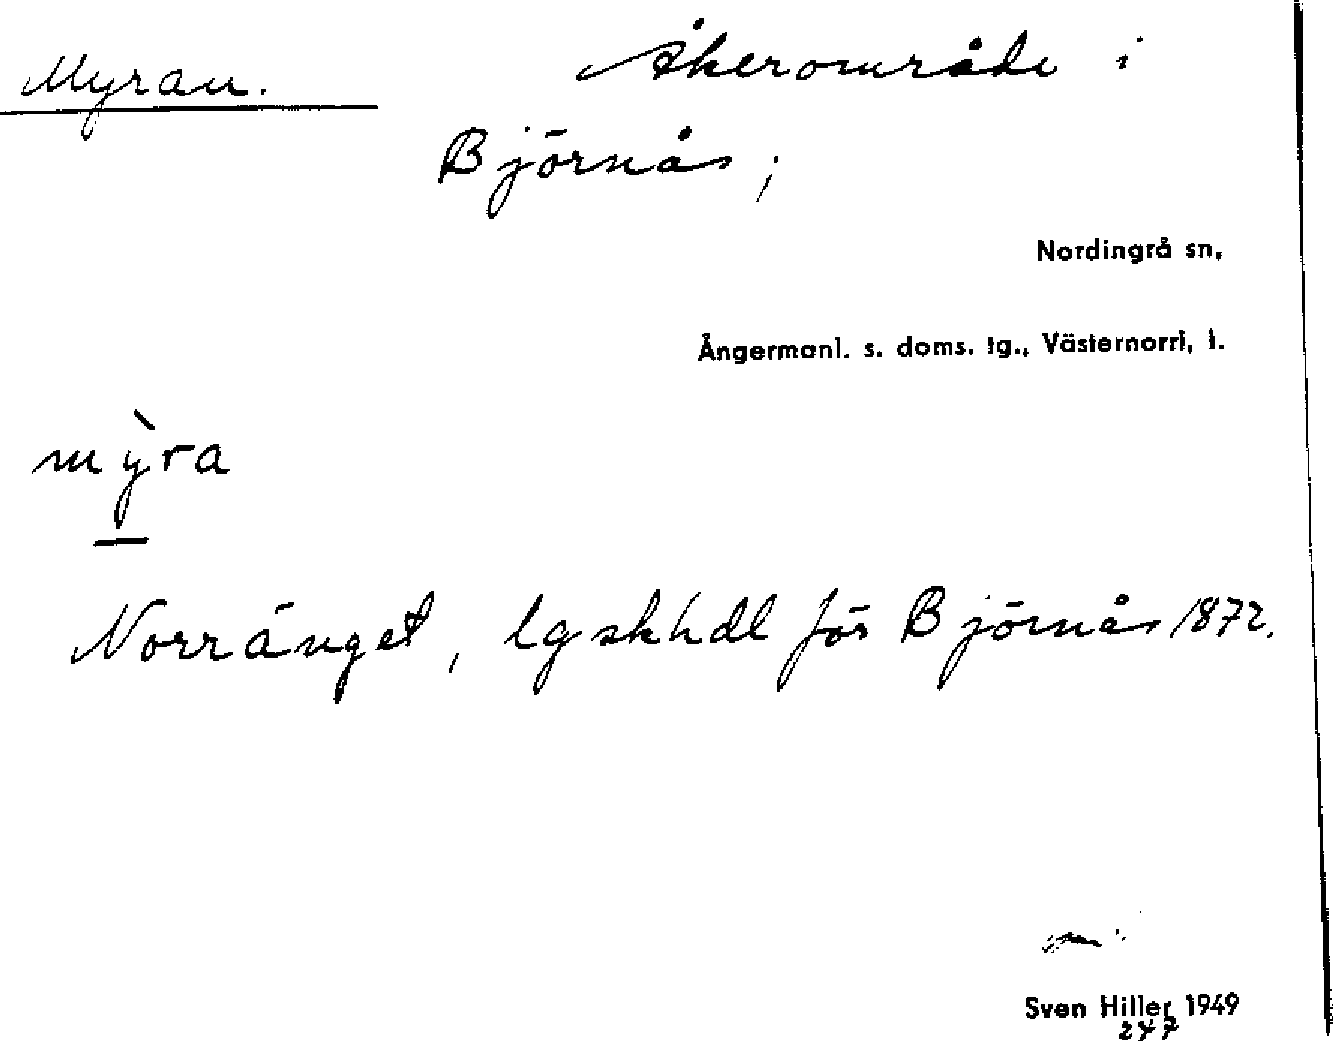 Myran.
Åkerområde i
Björnås;
Nordingrå sn,
Ångermanl. s. doms. tg., Västernorrl, l.
mỳra
Norränget, lgskhdl för Björnås 1872.
Sven Hiller 1949
247